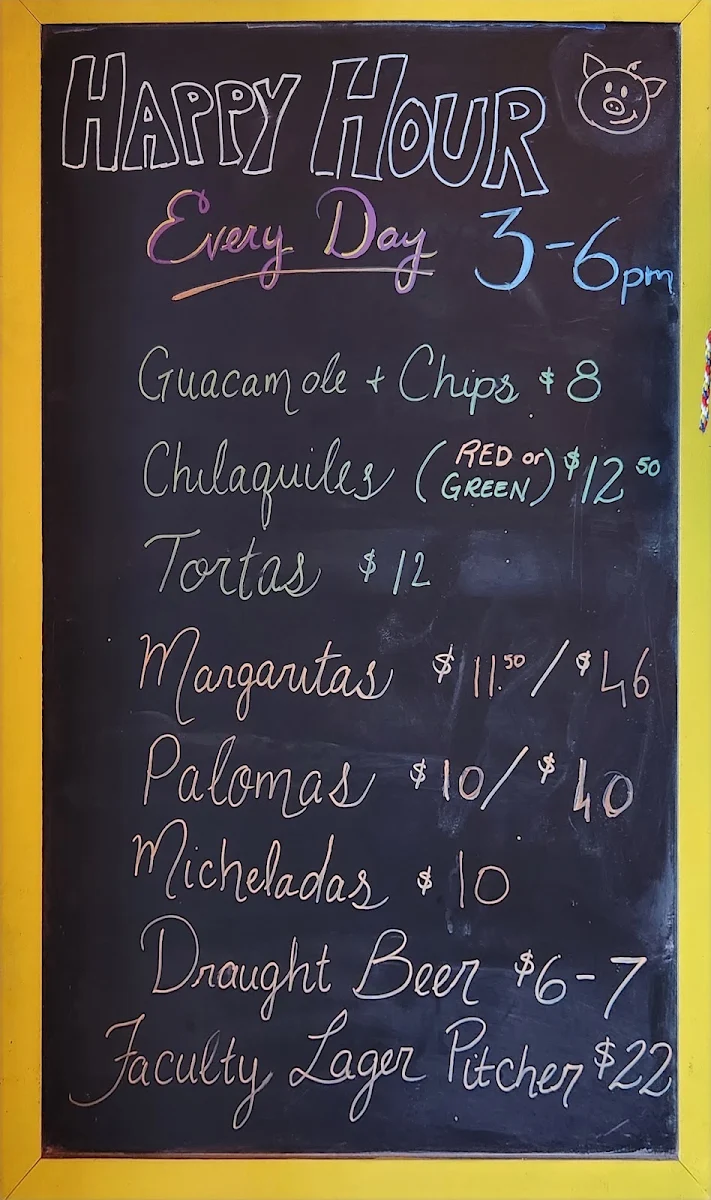 HAPPY HOUR
Every Day 3-6pm
Guacamole + Chips $8
Chilaquiles (RED or GREEN) $12 50
Tortas $12
Margaritas $11.50 / $46
Palomas $10 / $40
Micheladas $10
Draught Beer $6-7
Faculty Lager Pitcher $22